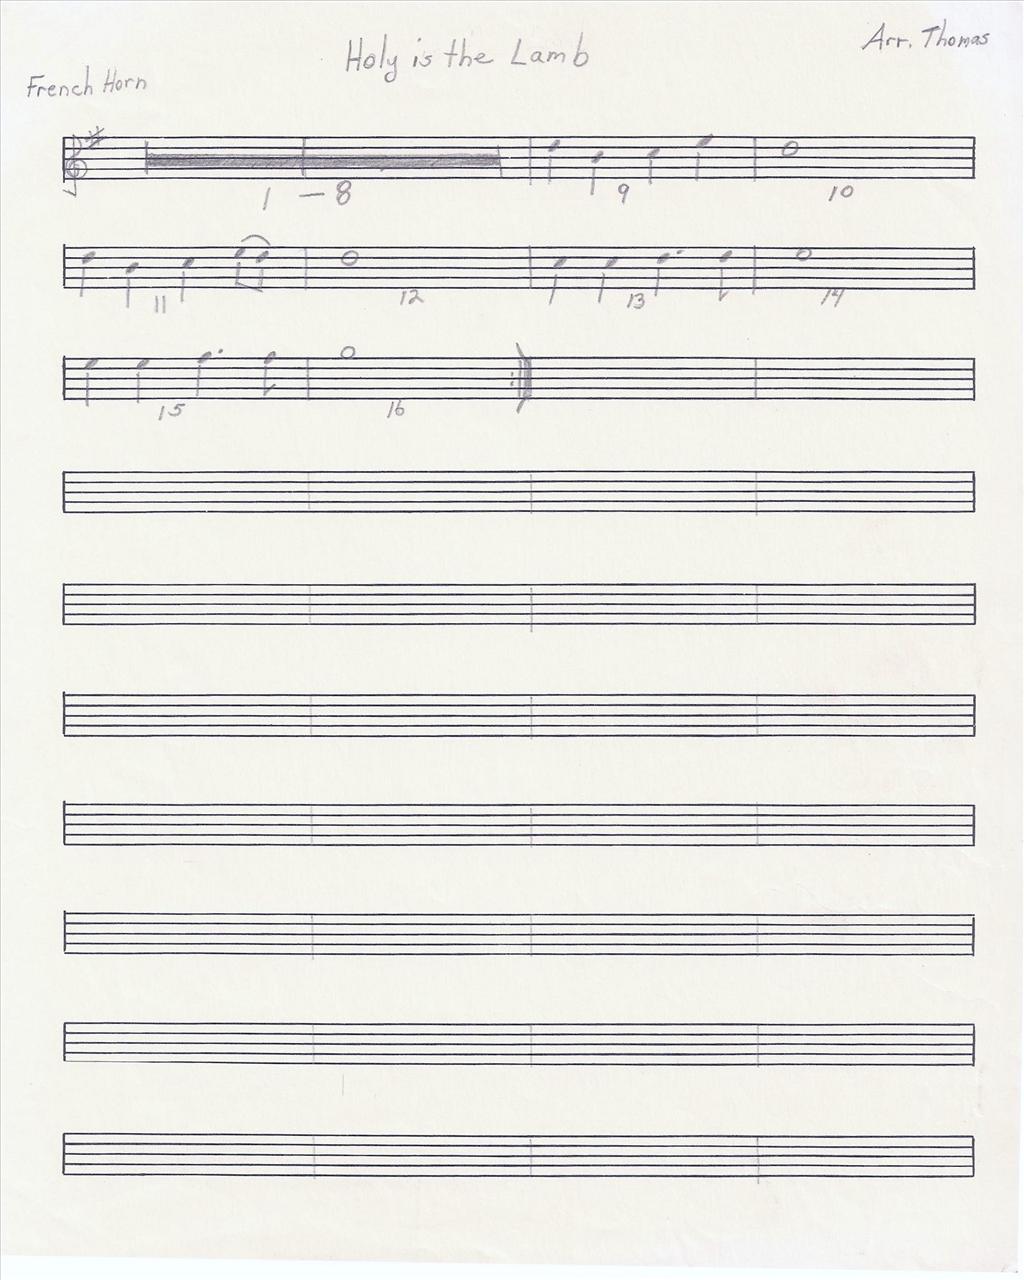 Holy is the Lamb
Arr. Thomas
French Horn
1 – 8
9
10
11
12
13
14
15
16